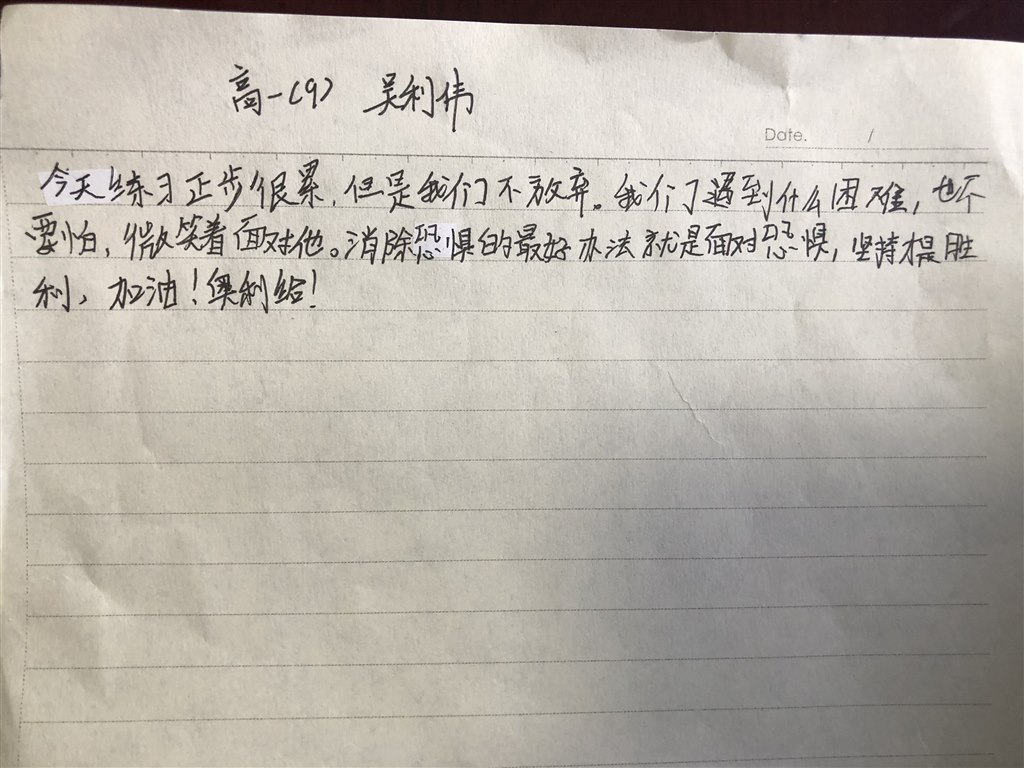 高一(9) 吴利伟
Date. /
今天练习正步很累,但是我们不放弃。我们遇到什么困难,也不
要怕,微笑着面对他。消除恐惧的最好办法就是面对恐惧,坚持才是胜
利,加油!奥利给!